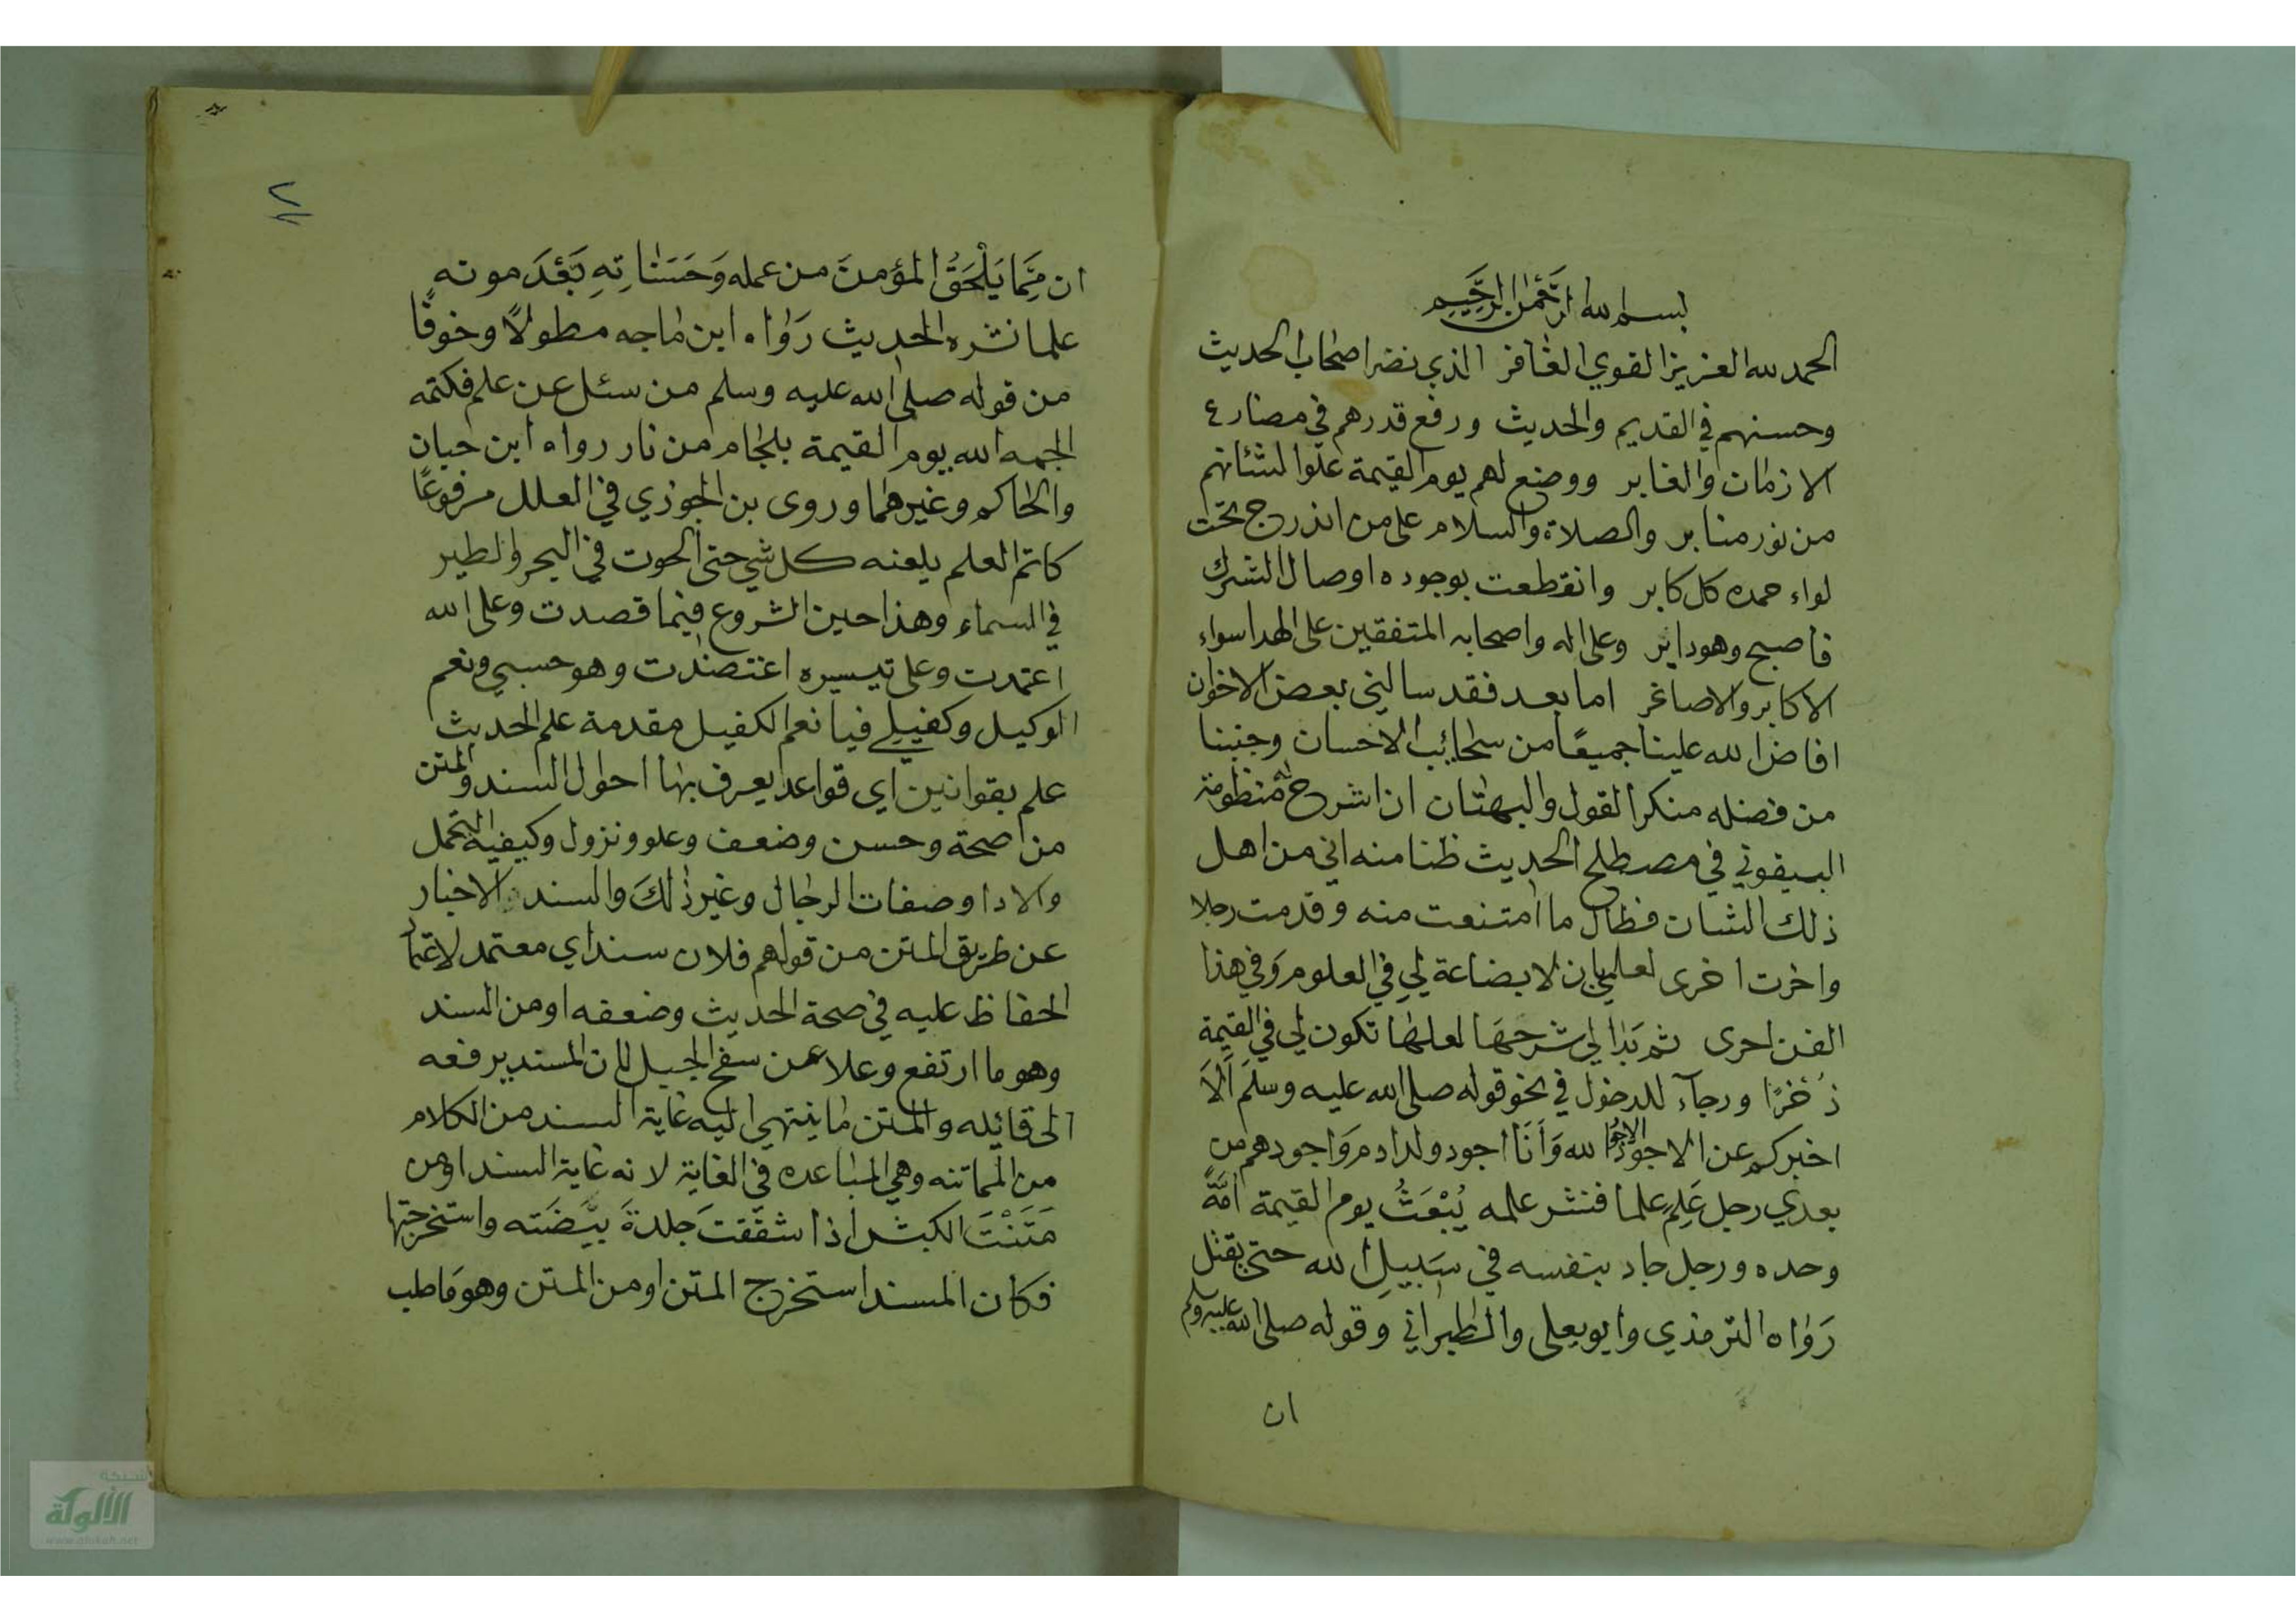 بسم الله الرحمن الرحيم
الحمد لله العزيز القوي الغافر الذي نضر اصحاب الحديث
وحسنهم في القديم والحديث ورفع قدرهم في مضارع
الازمان والغابر ووضع لهم يوم القيمة علوا لشئانهم
من نور منابر والصلاة والسلام على من اندرج تحت
لواء حمده كل كابر وانقطعت بوجوده اوصال الشرك
فاصبح وهو داير وعلى اله واصحابه المتفقين على الهدا سواء
الاكابر والاصاغر اما بعد فقد سالني بعض الاخوان
افاض الله علينا جميعًا من سحائب الاحسان وجنبنا
من فضله منكر القول والبهتان ان اشرح له منظومة
البيقوني في مصطلح الحديث ظنا منه اني من اهل
ذلك الشان فطال ما امتنعت منه وقدمت رجلا
واخرت اخرى لعلمي بان لا بضاعة لي في العلوم وَفي هذا
الفن احرى ثم بَدا لي شرحهَا لعلها تكون لي في القيمة
ذُخْرًا ورجآء للدخول في نحو قوله صلى الله عليه وسلمَ اَلاَ
اخبركم عن الاجود الاجود الله وَاَنَا اجود ولد ادم وَاجودهم من
بعدي رجل عَلِمَ علما فنشر علمه يُبْعَثُ يوم القيمة اُمَّةً
وحده ورجل جاد بنفسه في سَبيلِ الله حتى يقتل
رَوَاه الترمذي وابو يعلى والطبراني وقوله صلى الله عليه وسلم
ان
٢
ان مِمَّا يَلْحَقُ المؤمنَ من عمله وَحَسَنَاتِهِ بَعْدَ موته
علما نشره الحديث رَوَاه ابن ماجه مطولاً وخوفًا
من قوله صلى الله عليه وسلم من سئل عن علم فكتمه
الجمه الله يوم القيمة بلجام من نار رواه ابن حبان
والحاكم وغيرهما وروى بن الجوزي في العلل مرفوعًا
كاتم العلم يلعنه كل شي حتى الحوت في البحر والطير
في السماء وهذا حين الشروع فيما قصدت وعلى الله
اعتمدت وعلى تيسيره اعتضدت وهو حسبي ونعم
الوكيل وكفيلي فيا نعم الكفيل مقدمة علم الحديث
علم بقوانين اي قواعد يعرف بها احوال السند والمتن
من صحة وحسن وضعف وعلو ونزول وكيفية التحمل
والادا وصفات الرجال وغير ذلكَ والسند الاخبار
عن طريق المتن من قولهم فلان سند اي معتمد لاعتماد
الحفاظ عليه في صحة الحديث وضعفه او من السند
وهو ما ارتفع وعلا عن سفح الجبل لان المسند يرفعه
الى قائله والمتن ما ينتهي اليه غاية السند من الكلام
من المماتنه وهي المباعده في الغاية لانه غاية السند او من
مَتَنْتَ الكبش اذا شققتَ جلدةَ بَيْضَته واستخرجتها
فكان المسند استخرج المتن او من المتن وهو مَا صلب
شبكة
الألوكة
www.alukah.net